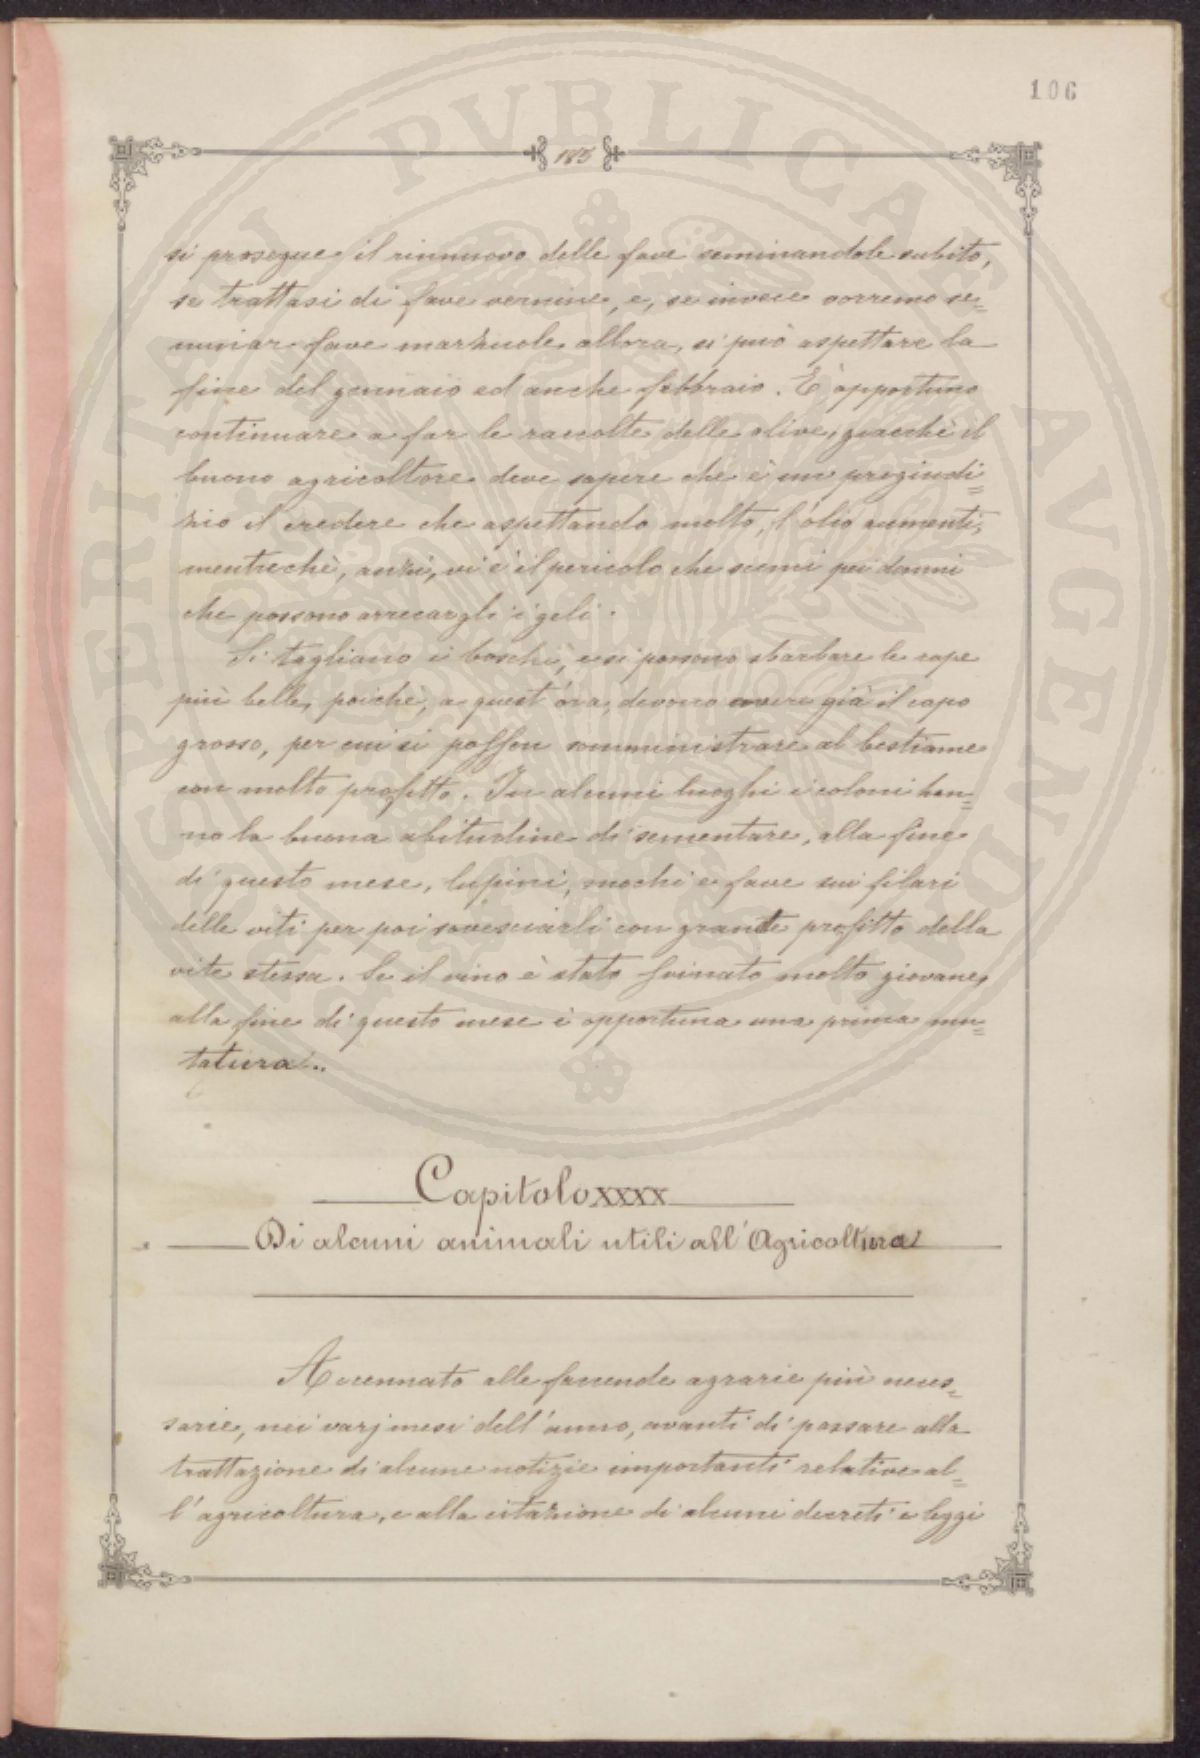 106
185
si prosegue il rinnuovo delle fave seminandole subito,
se trattasi di fave vernine, e, se invece vorremo se=
minar fave marzuole allora, si può aspettare la
fine del gennaio ed anche febbraio. È opportuno
continuare a far le raccolte delle olive, giacchè il
buono agricoltore deve sapere che è un pregiudi=
zio il credere che aspettando molto, l'olio aumenti,
mentrechè, anzi, vi è il pericolo che scemi pei danni
che possono arrecargli i geli.
Si tagliano i boschi, e si possono sbarbare le rape
più belle, poichè, a quest'ora, devono avere già il capo
grosso, per cui si posson somministrare al bestiame
con molto profitto. In alcuni luoghi i coloni han=
no la buona abitudine di sementare, alla fine
di questo mese, lupini, mochi e fave sui filari
delle viti per poi sovesciarli con grande profitto della
vite stessa. Se il vino è stato svinato molto giovane,
alla fine di questo mese è opportuna una prima mu=
tatura..
Capitolo XXXX
Di alcuni animali utili all'Agricoltura
Accennato alle faccende agrarie più neces=
sarie, nei varj mesi dell'anno, avanti di passare alla
trattazione di alcune notizie importanti relative al=
l'agricoltura, e alla citazione di alcuni decreti e leggi
PROSPERITATI PVBLICAE AVGENDAE